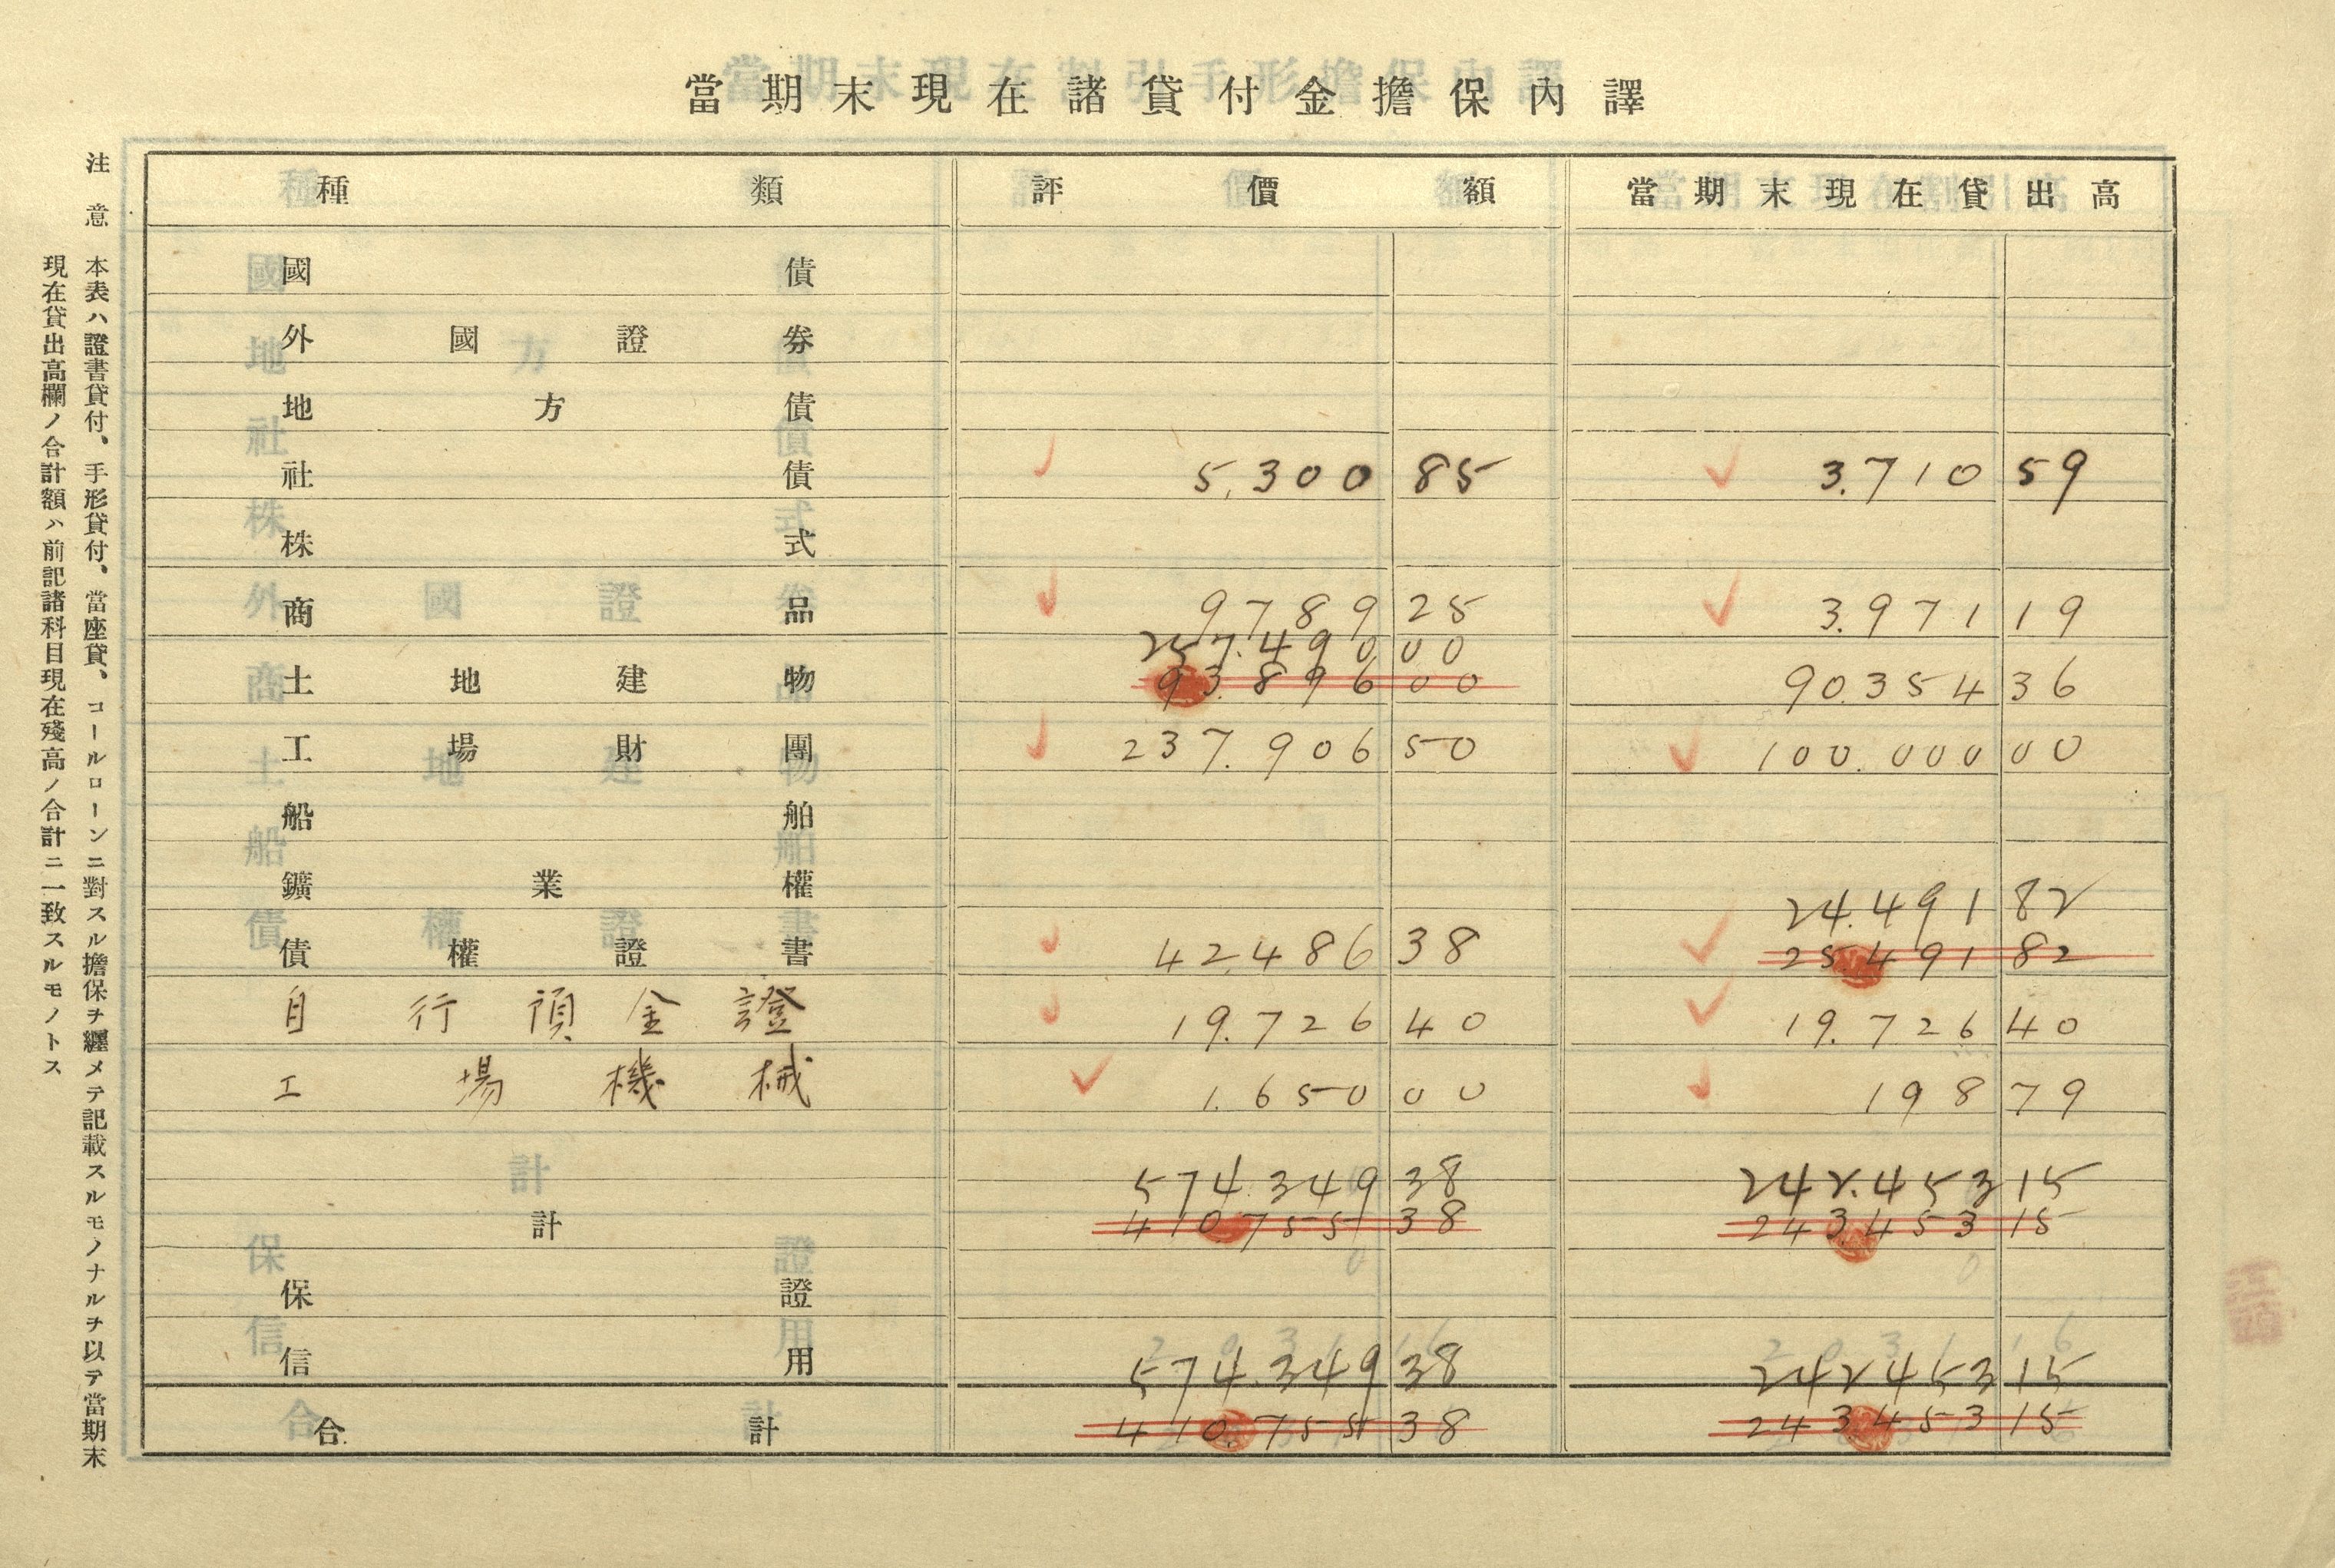 當期末現在諸貸付金擔保內譯
種類 評價額 當期末現在貸出高
國債
外國證券
地方債
社債 5,300 85 3.710 59
株式
商品 9789 25 3.971 19
257.490 00
土地建物 93.896 00 90.354 36
工場財團 237.906 50 100.000 00
船舶
鑛業權
24.491 82
債權證書 42.486 38 25.491 82
自行預金證 19.726 40 19.726 40
工場機械 1.650 00 198 79
574.349 38 242.453 15
計 410.755 38 243.453 15
保證
信用
574.349 38 242453 15
合計 410.755 38 243.453 15
注意 本表ハ證書貸付、手形貸付、當座貸、コールローンニ對スル擔保ヲ纒メテ記載スルモノナルヲ以テ當期末
現在貸出高欄ノ合計額ハ前記諸科目現在殘高ノ合計ニ一致スルモノトス